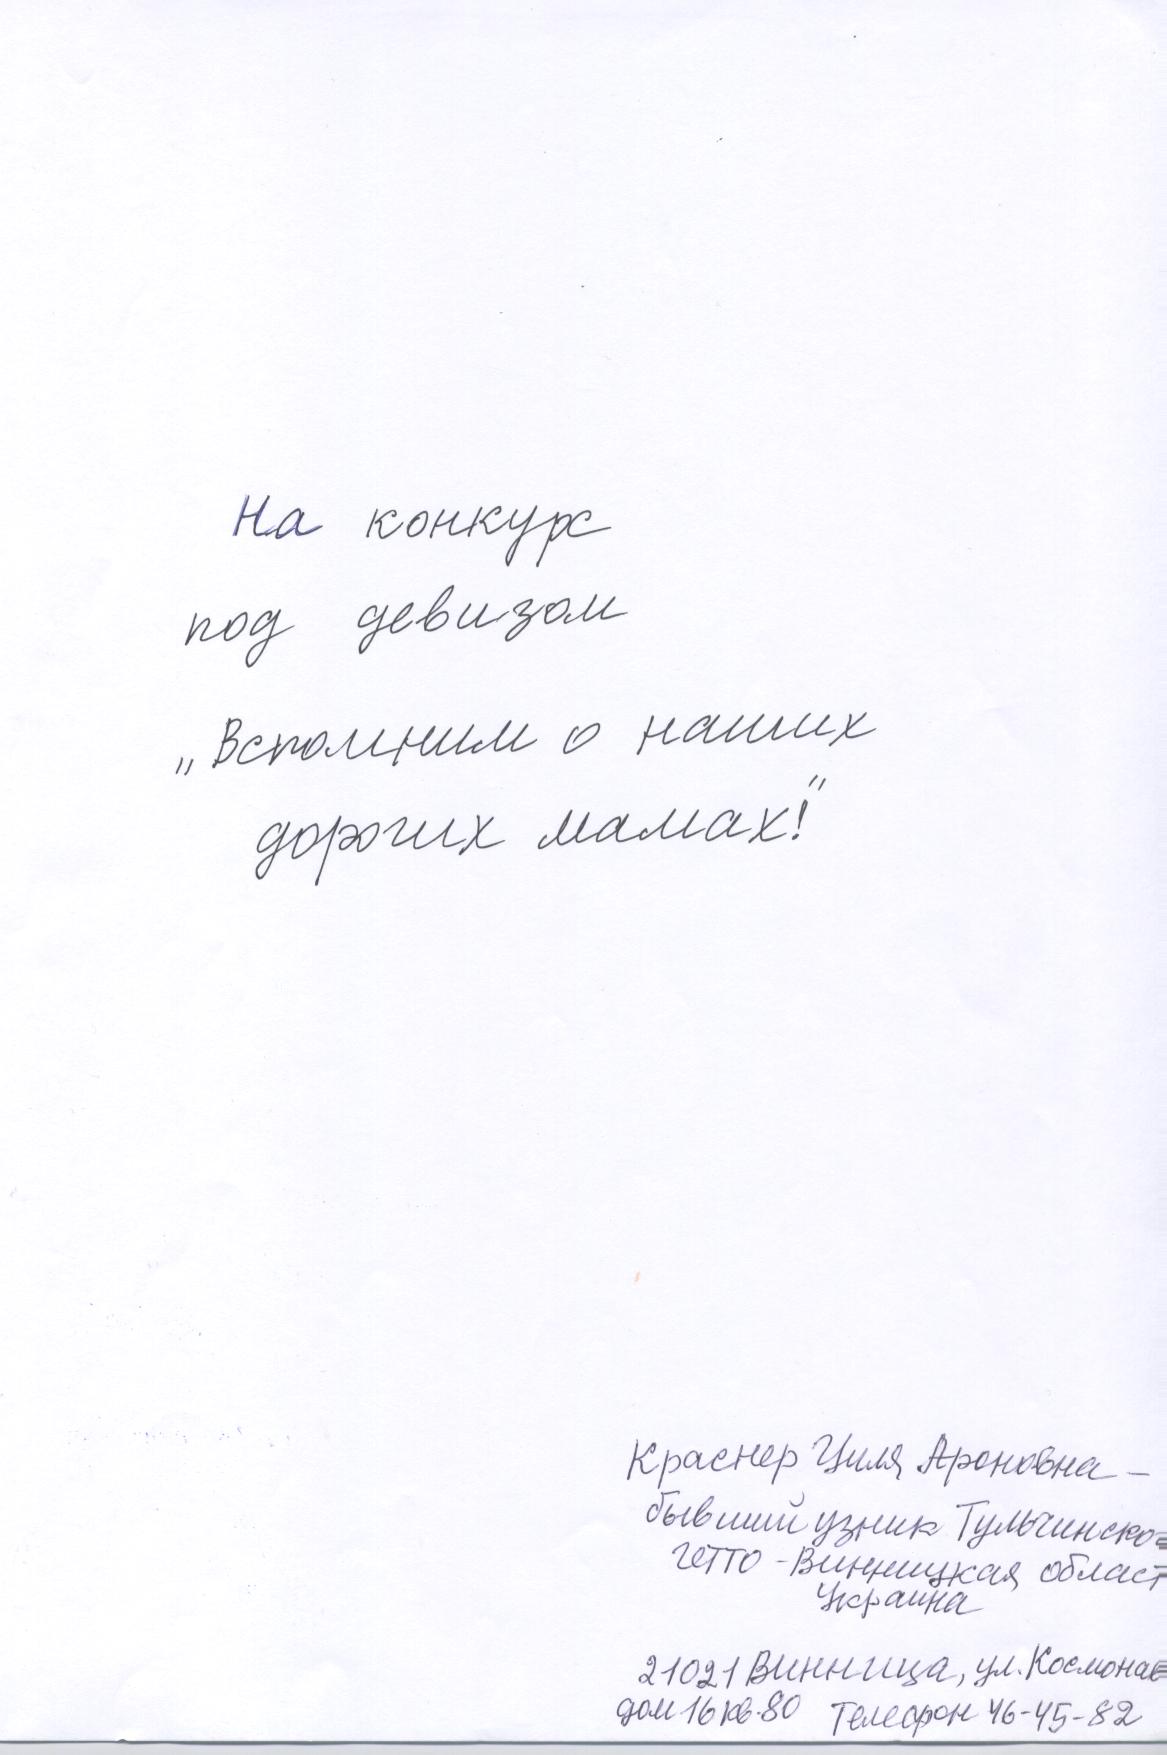 На конкурс
под девизом
„Вспомним о наших
дорогих мамах!"
Краснер Циля Ароновна –
бывший узник Тульчинско
гетто - Винницкая област
Украина
21021 Винница, ул. Космонав
дом 16 кв. 80 Телефон 46-45-82